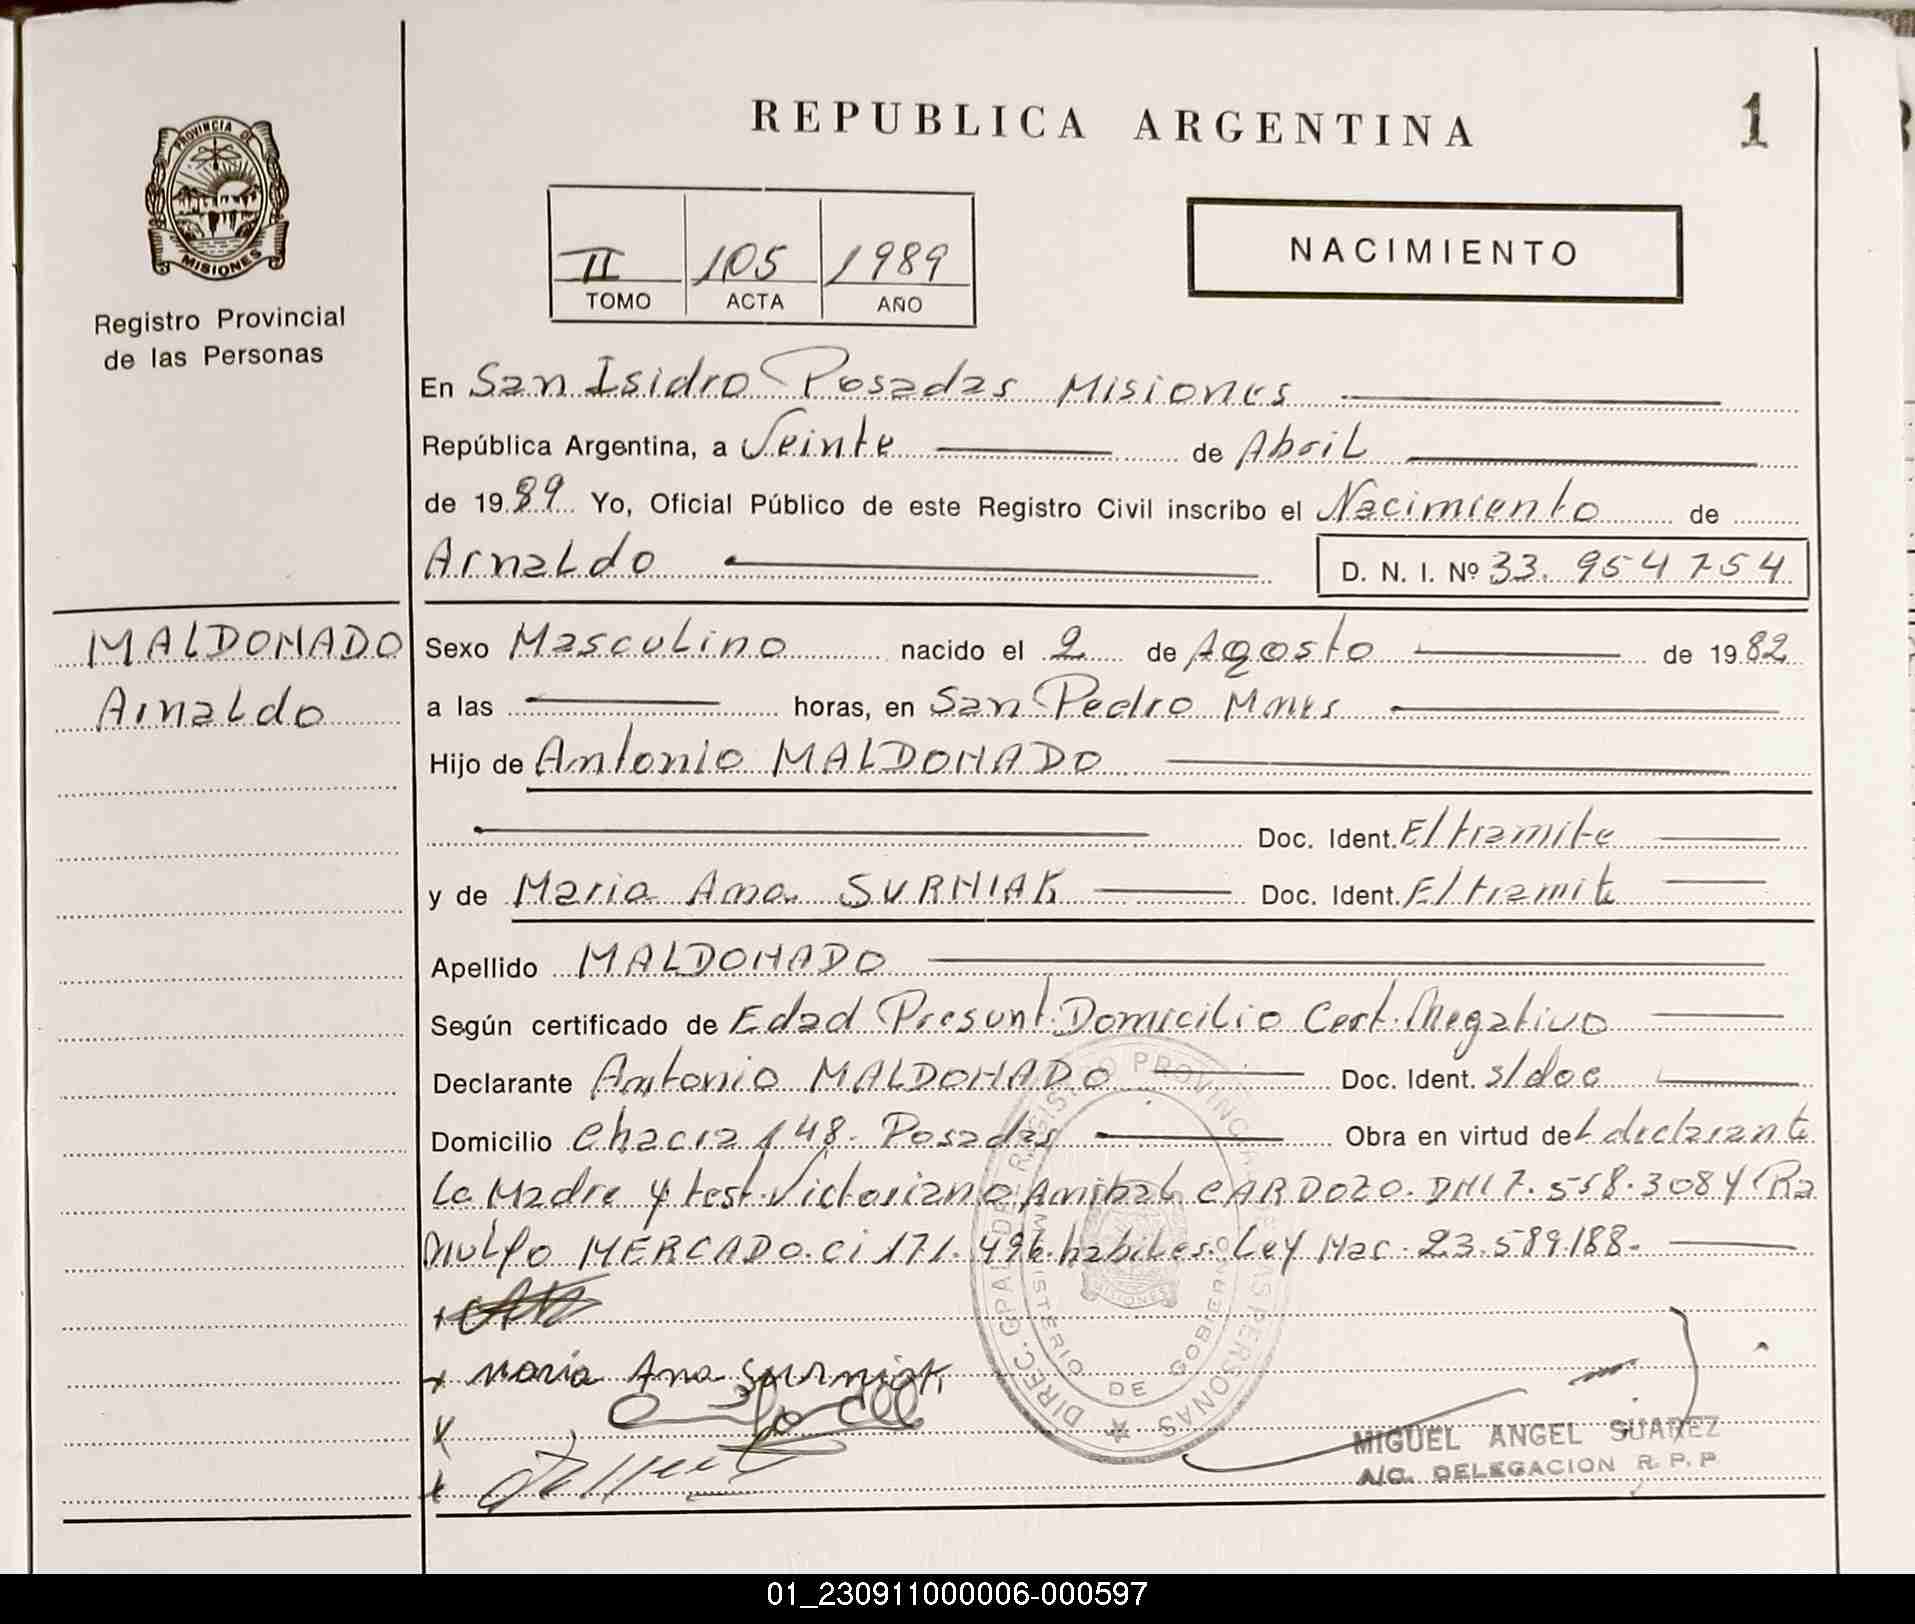 REPUBLICA ARGENTINA
1
PROVINCIA DE
MISIONES
Registro Provincial
de las Personas
II 105 1989
TOMO ACTA AÑO
NACIMIENTO
En San Isidro Posadas Misiones
República Argentina, a Veinte de Abril
de 1989 Yo, Oficial Público de este Registro Civil inscribo el Nacimiento de
Arnaldo D. N. I. Nº 33.954754
MALDONADO
Arnaldo
Sexo Masculino nacido el 2 de Agosto de 1982
a las horas, en San Pedro Mnes
Hijo de Antonio MALDONADO
Doc. Ident. E/tramite
y de Maria Ana SURNIAK Doc. Ident. E/tramite
Apellido MALDONADO
Según certificado de Edad Presunt. Domicilio Cert. Negativo
Declarante Antonio MALDONADO Doc. Ident. s/doc
Domicilio Chacra 148. Posadas Obra en virtud del declarante
La Madre y test. Victoriano Anibal CARDOZO. DNI 7.558.308 y Ra
nulfo MERCADO. Ci 171.496. habiles. Ley Nac. 23.589.188.
Maria Ana Surniak
DIREC. GRAL DE REGISTRO PROVINCIAL DE LAS PERSONAS
MINISTERIO DE GOBIERNO
MISIONES
MIGUEL ANGEL SUAREZ
A/C. DELEGACION R. P. P
01_230911000006-000597